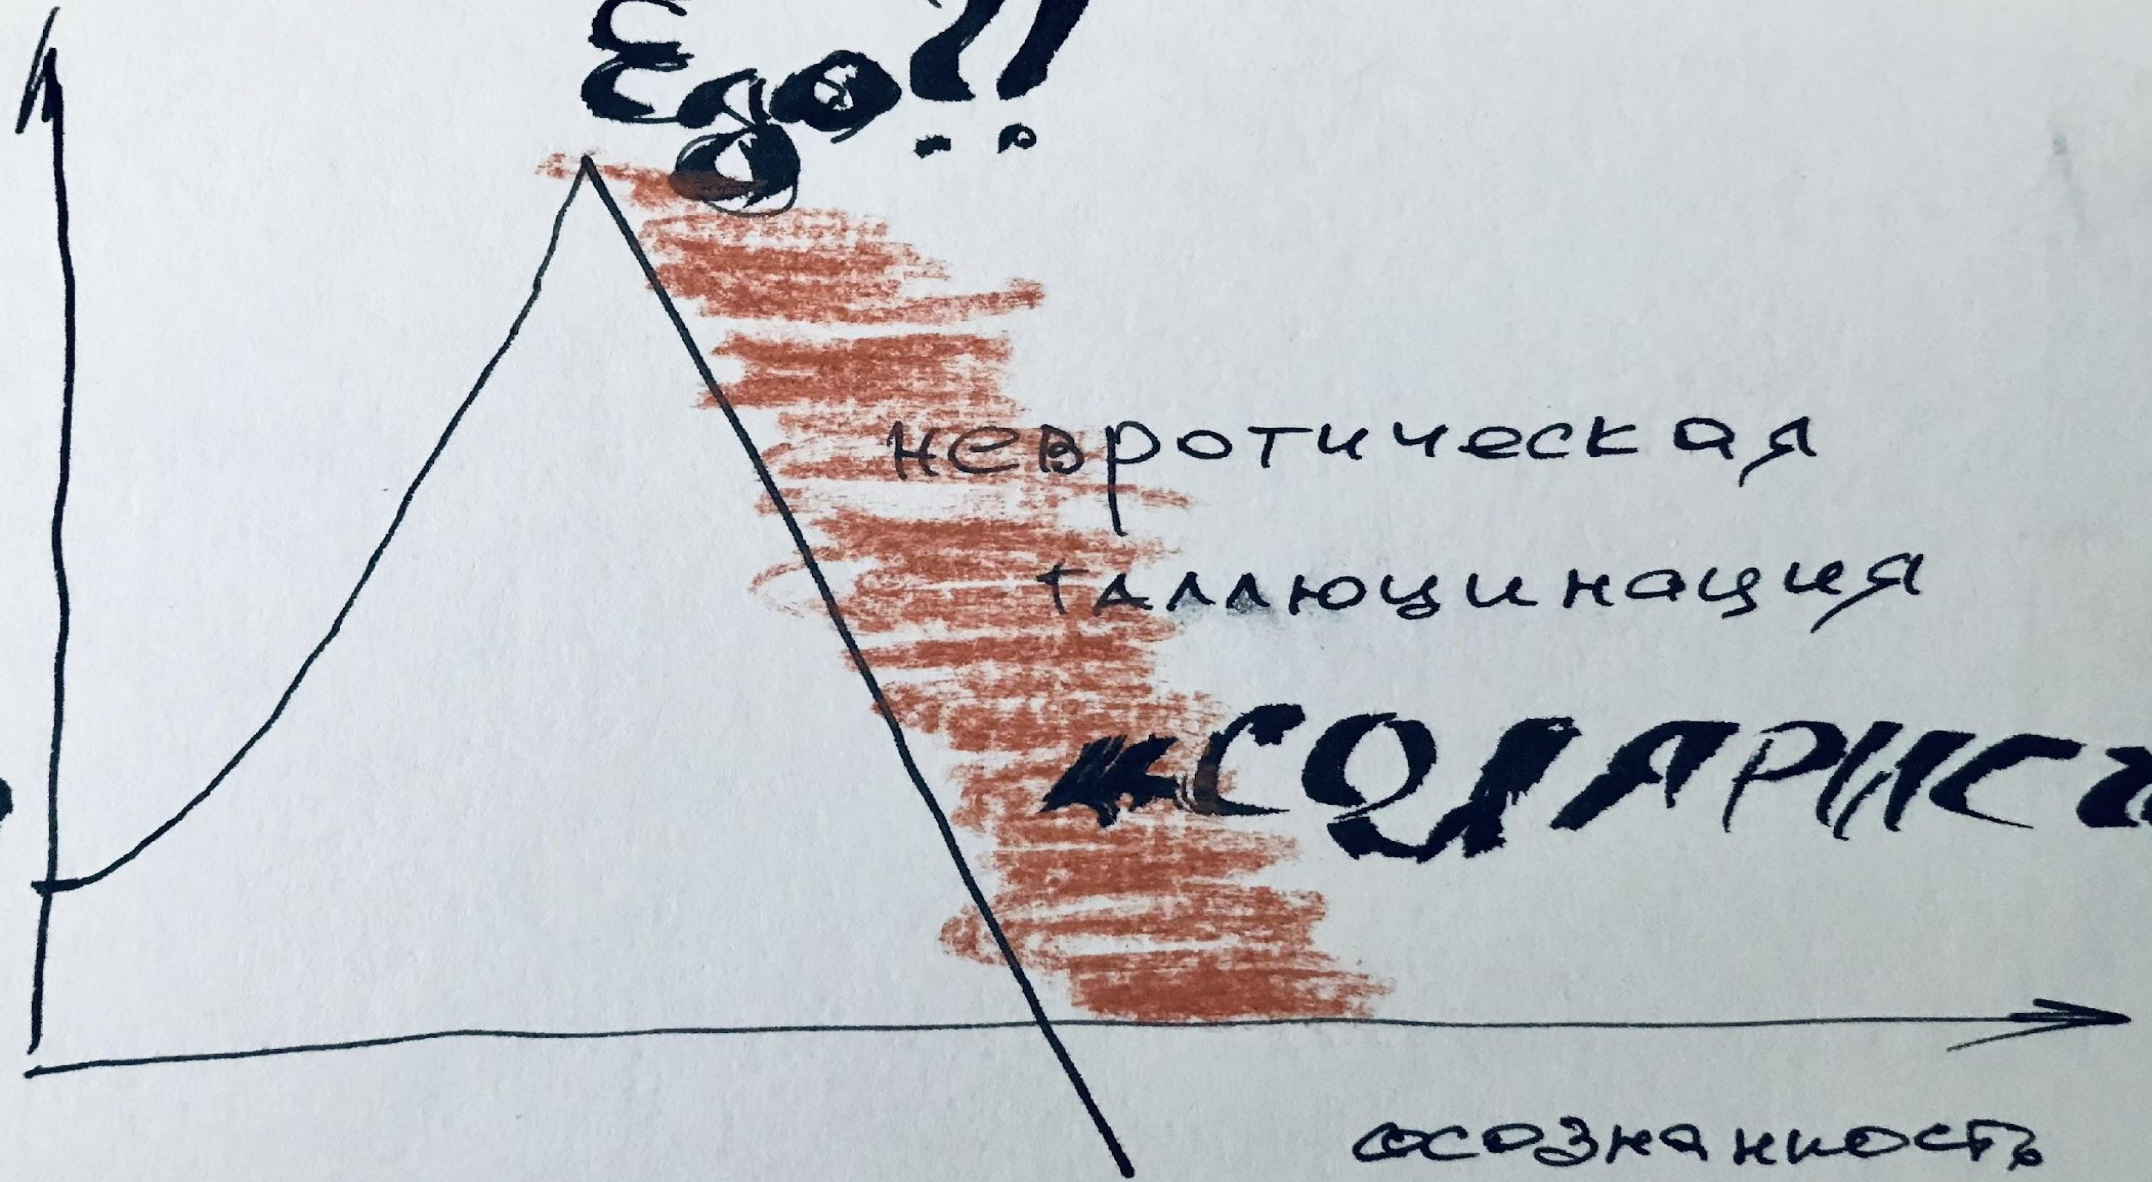 Ego?!
невротическая
галлюцинация
«СОЛЯРИС»
осознанность